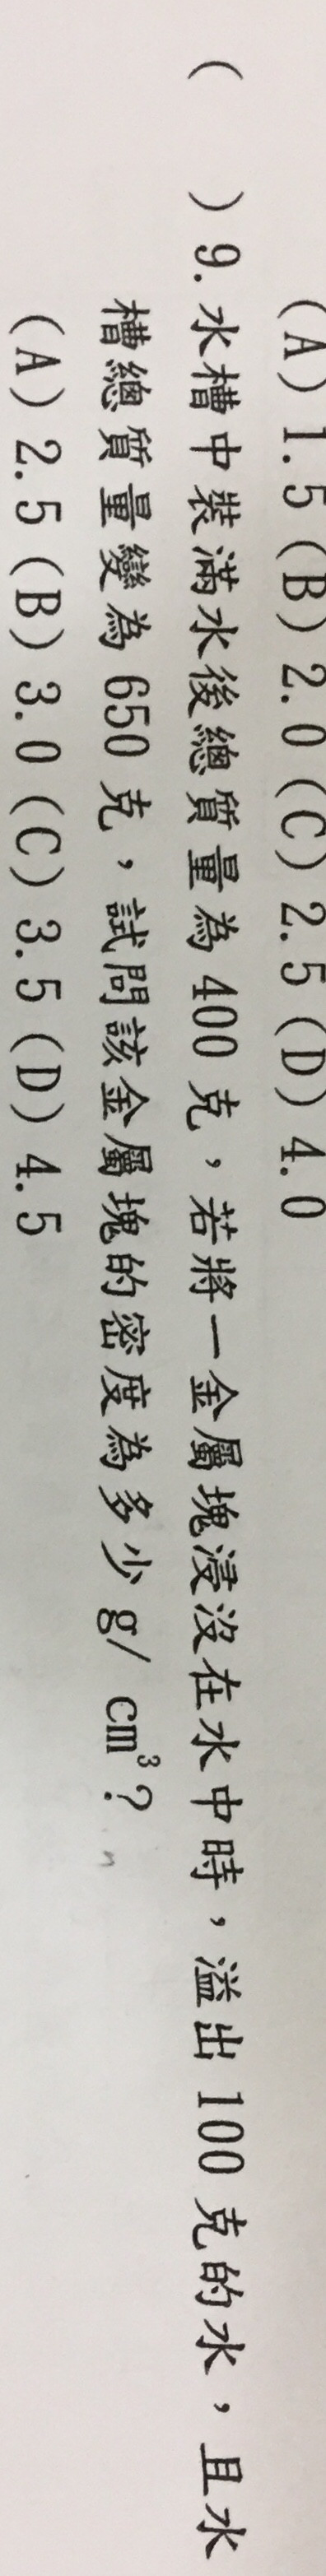 (A) 1.5 (B) 2.0 (C) 2.5 (D) 4.0
(　　) 9. 水槽中裝滿水後總質量為 400 克，若將一金屬塊浸沒在水中時，溢出 100 克的水，且水
槽總質量變為 650 克，試問該金屬塊的密度為多少 g/ cm³？
(A) 2.5 (B) 3.0 (C) 3.5 (D) 4.5